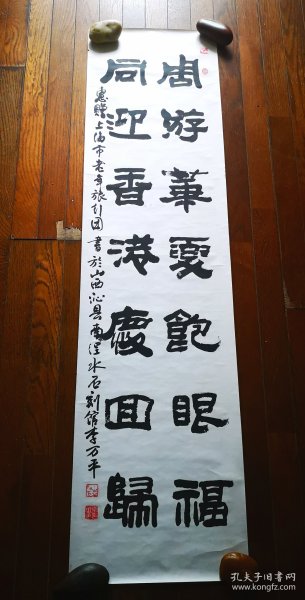 周游华夏饱眼福
同迎香港庆回归
惠赠上海市老年旅行团 書於山西沁县南涅水石刻馆李万平
孔夫子旧书网
www.kongfz.com